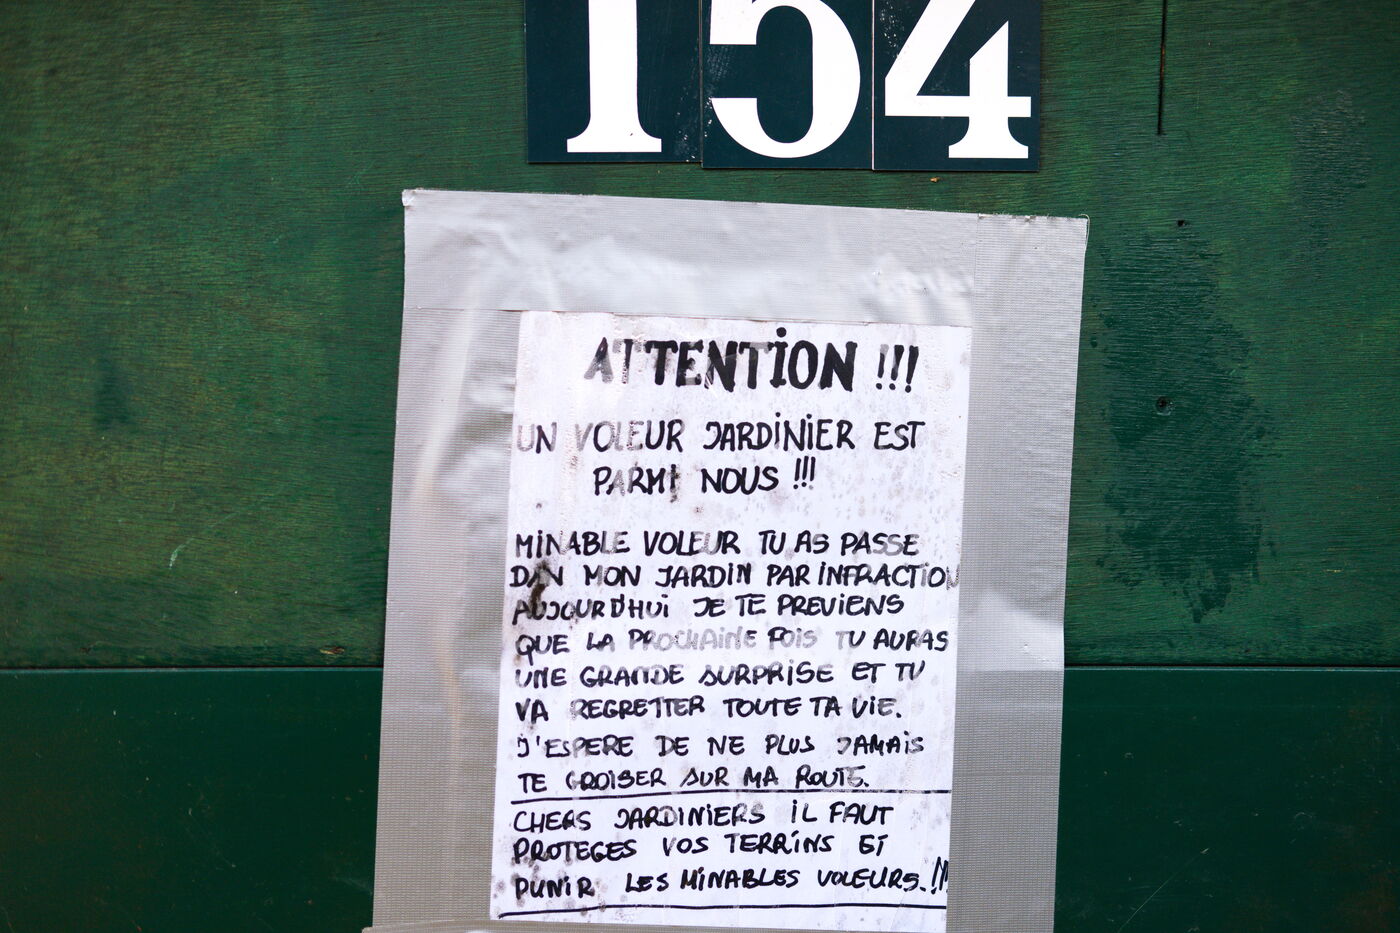 154
ATTENTION !!!
UN VOLEUR JARDINIER EST
PARMI NOUS !!!
MINABLE VOLEUR TU AS PASSE
DAN MON JARDIN PAR INFRACTION
AUJOURD'HUI JE TE PREVIENS
QUE LA PROCHAINE FOIS TU AURAS
UNE GRANDE SURPRISE ET TU
VA REGRETTER TOUTE TA VIE.
J'ESPERE DE NE PLUS JAMAIS
TE CROISER SUR MA ROUTE.
CHERS JARDINIERS IL FAUT
PROTEGES VOS TERRINS ET
PUNIR LES MINABLES VOLEURS.!!!